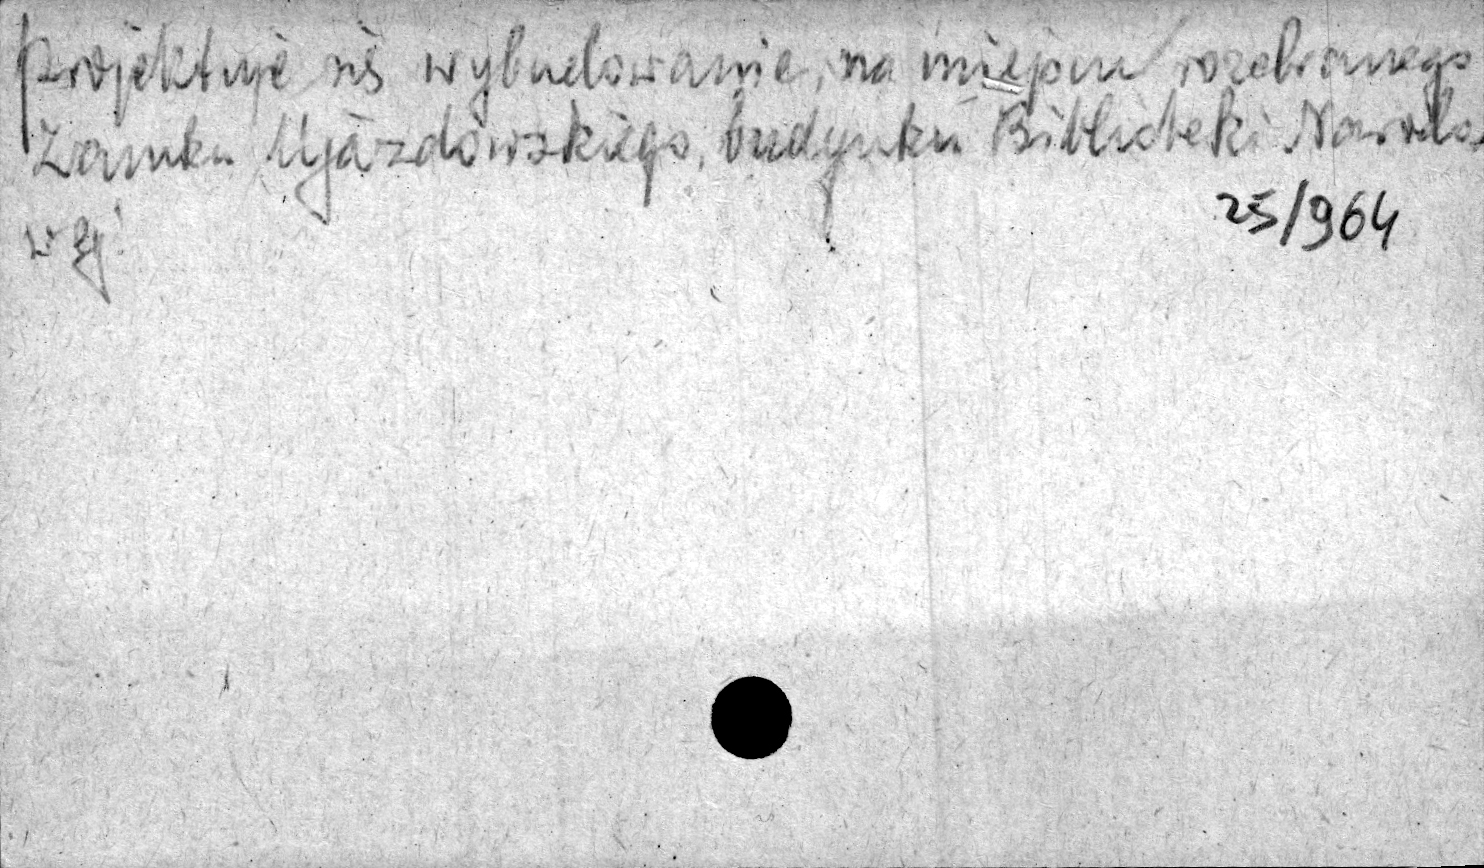 projektuje się wybudowanie, na miejscu rozebranego
Zamku Ujazdowskiego, budynku Biblioteki Narodo
wej.
25/964